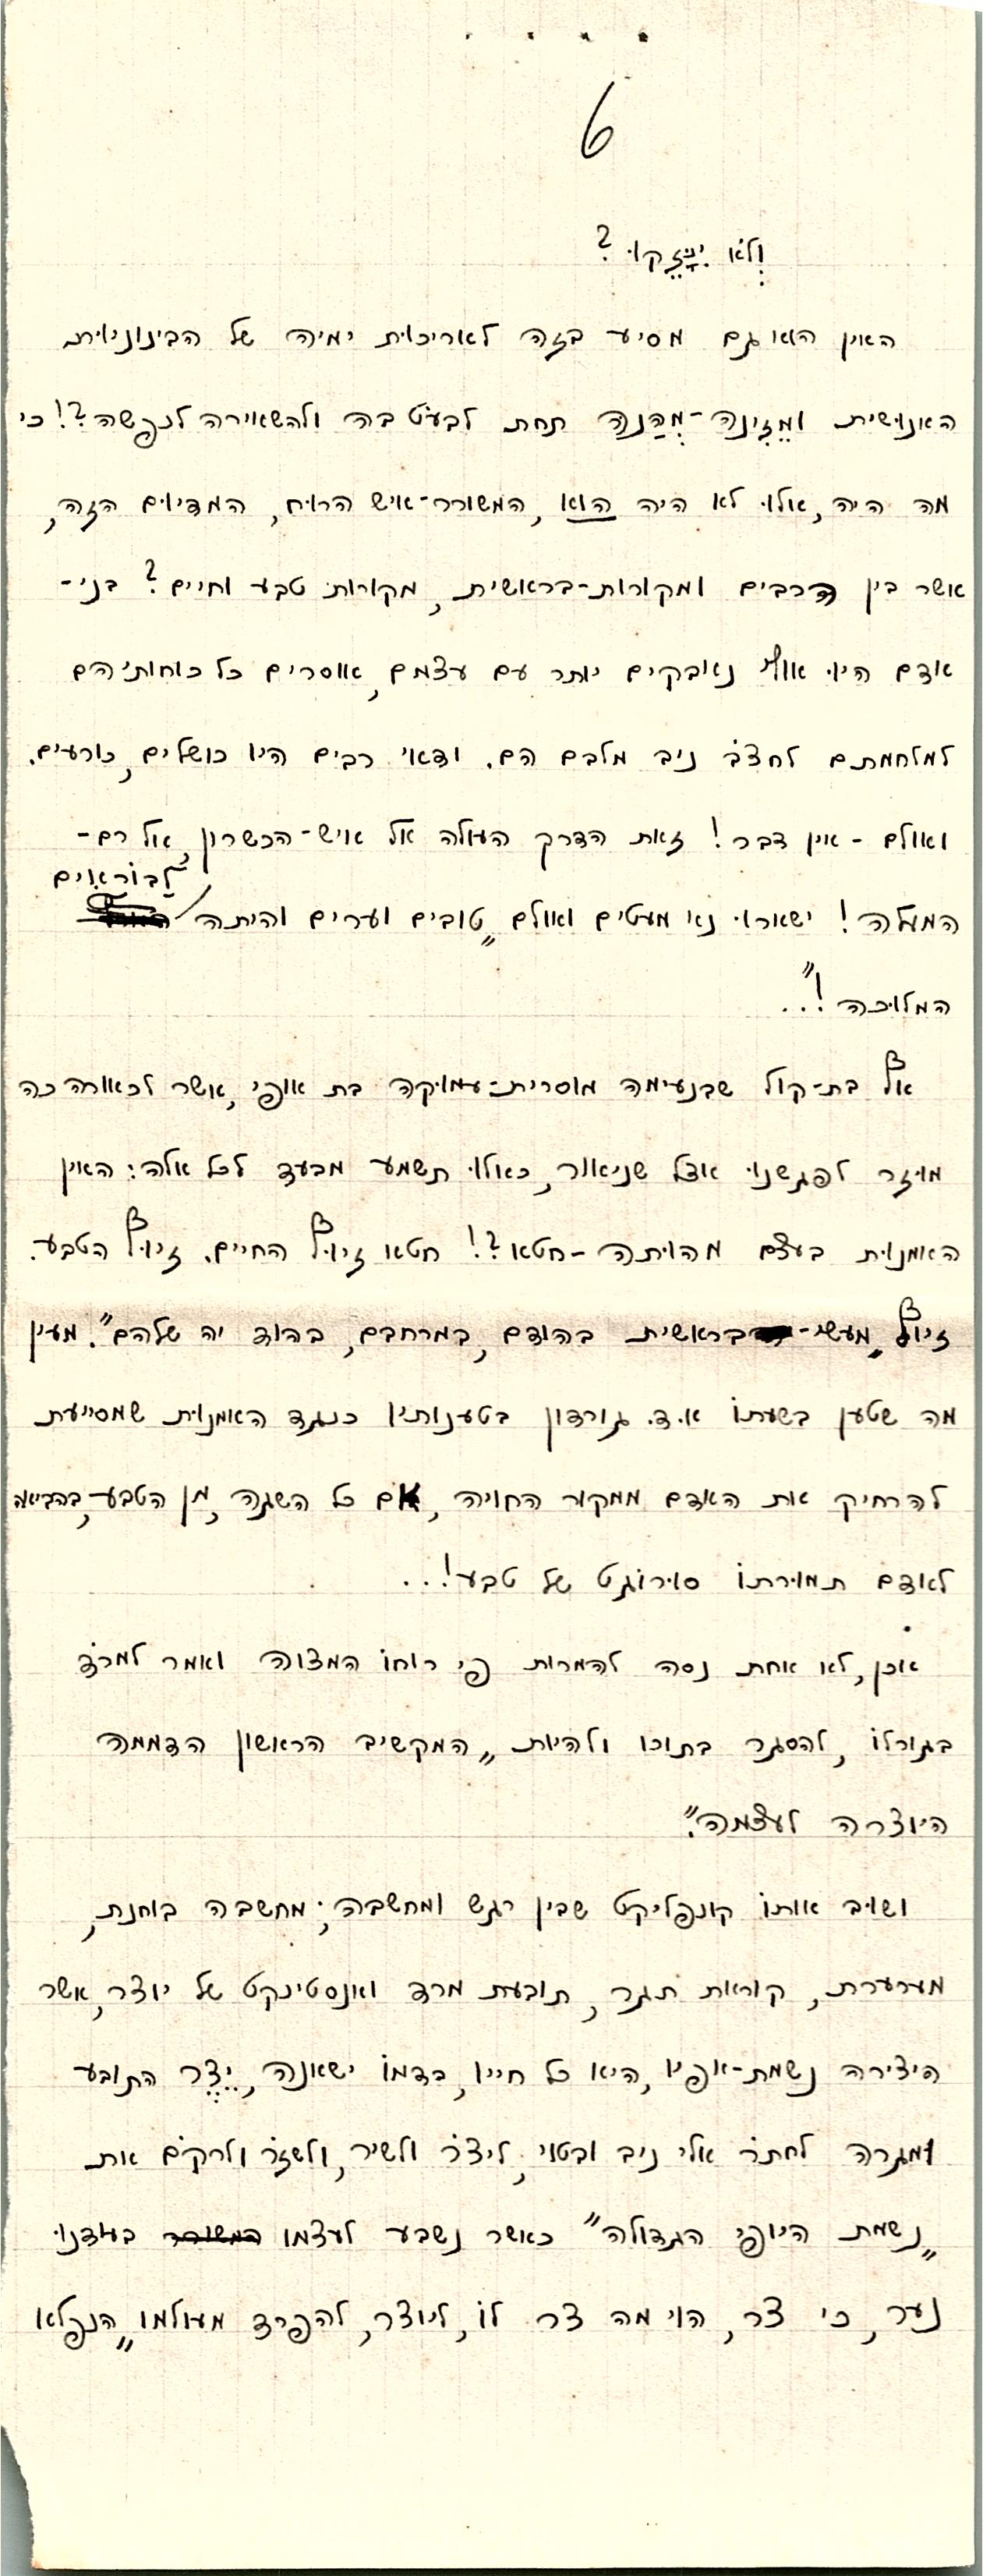 6
וְלֹא יִנָּזֵקוּ ?
האין האוגם מסיע בזה לאריכות ימיה של הבינוניות
האנושית ומֵזִינה-מְהַנה תחת לבעֹט בה ולהשאירה לנפשה?! כי
מה היה, אלו לא היה הוא, המשורר-איש הרוח, המדיום הזה,
אשר בין הרבים ומקורות-בראשית, מקורות טבע וחיים? בני-
אדם היו אולי נאבקים יותר עם עצמם, אוסרים כל כוחותיהם
למלחמתם לחצֹב ניב מלבם הם. ודאי רבים היו כושלים, כורעים.
ואולם - אין דבר! זאת הדרך העולה אל איש-הכשרון, אל רם-
המעלה! ישארו נא מעטים ואולם "טובים וערים והיתה לַבּוֹרְאִים
המלוכה!"..
אֵל בת-קול שבנעימה מוסרית-עמוקה בת אופי, אשר לכאורה כה
מוזר לפגשנו אצל שניאור, כאלו תשמע מבעד לכל אלה: האין
האמנות בעצם מהותה - חטא?! חטא זיוף החיים, זיוף הטבע.
זיוף "מעשי-בראשית בהודם, במרחבם, בהוד יה שלהם". מעין
מה שטען בשעתו א.ד. גורדון בטענותיו כנגד האמנות שמסייעת
להרחיק את האדם ממקור החויה, אם כל השגה, מן הטבע, בהביאה
לאדם תמורתו סורוֹגט של טבע!...
אכן, לא אחת נסה להמרות פי רוחו המצוה ואמר למרֹד
בגורלו, להסגר בתוכו ולהיות "המקשיב הראשון הדממה
היוצרה לעצמה".
ושוב אותו קונפליקט שבין רגש ומחשבה; מחשבה בוחנת,
מערערת, קוראת תגר, תובעת מרד ואנסטינקט של יוצר, אשר
היצירה נשמת-אפיו, היא כל חייו, בדמו ישאנה, יֵצֶר התובע
ומגרה לחתֹר אלי ניב ובטוי, ליצֹר ולשיר, ולשזֹר ולרקֹם את
"נשמת היופי הגדולה" כאשר נשבע לעצמו בעודנו
נער, כי צר, הוי מה צר לו, ליוצר, להפרד מעולמו "הנפלא